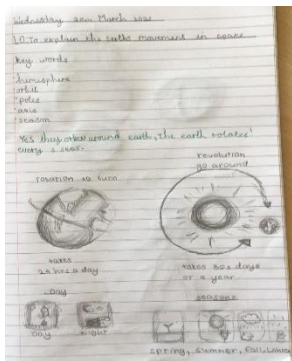 Wednesday March
L.O. To explain the earths movement in space
Key words
hemisphere
orbit
poles
axis
season
Yes they orbit around earth, the earth rotates
every
revolution
go around
rotation to turn
takes
24 hrs a day
takes 365 days
or a year
Day
seasons
Day
night
Spring, Summer, Fall, winter